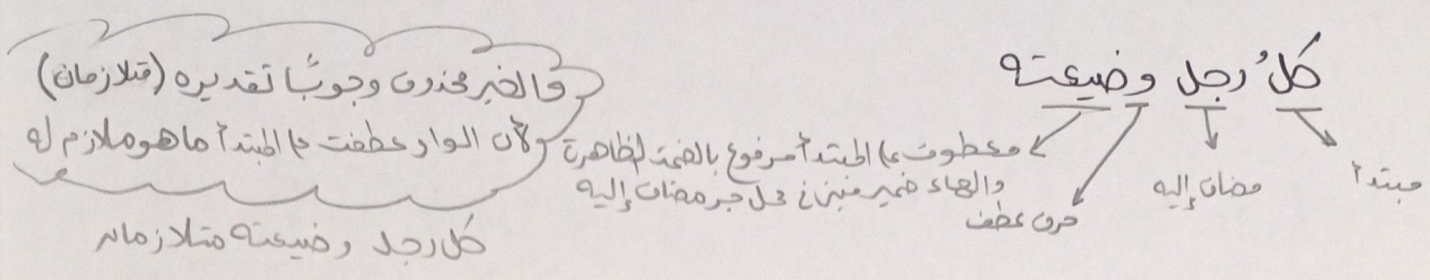 كلُ رجل وضيعته
مبتدأ
مضاف إليه
حرف عطف
معطوف على المبتدأ مرفوع بالضمة الظاهرة
والهاء ضمير مبني في محل جر مضاف إليه
والخبر محذوف وجوبًا تقديره (متلازمان)
لأن الواو عطفت على المبتدأ ما هو ملازم له
كل رجل وضيعته متلازمان